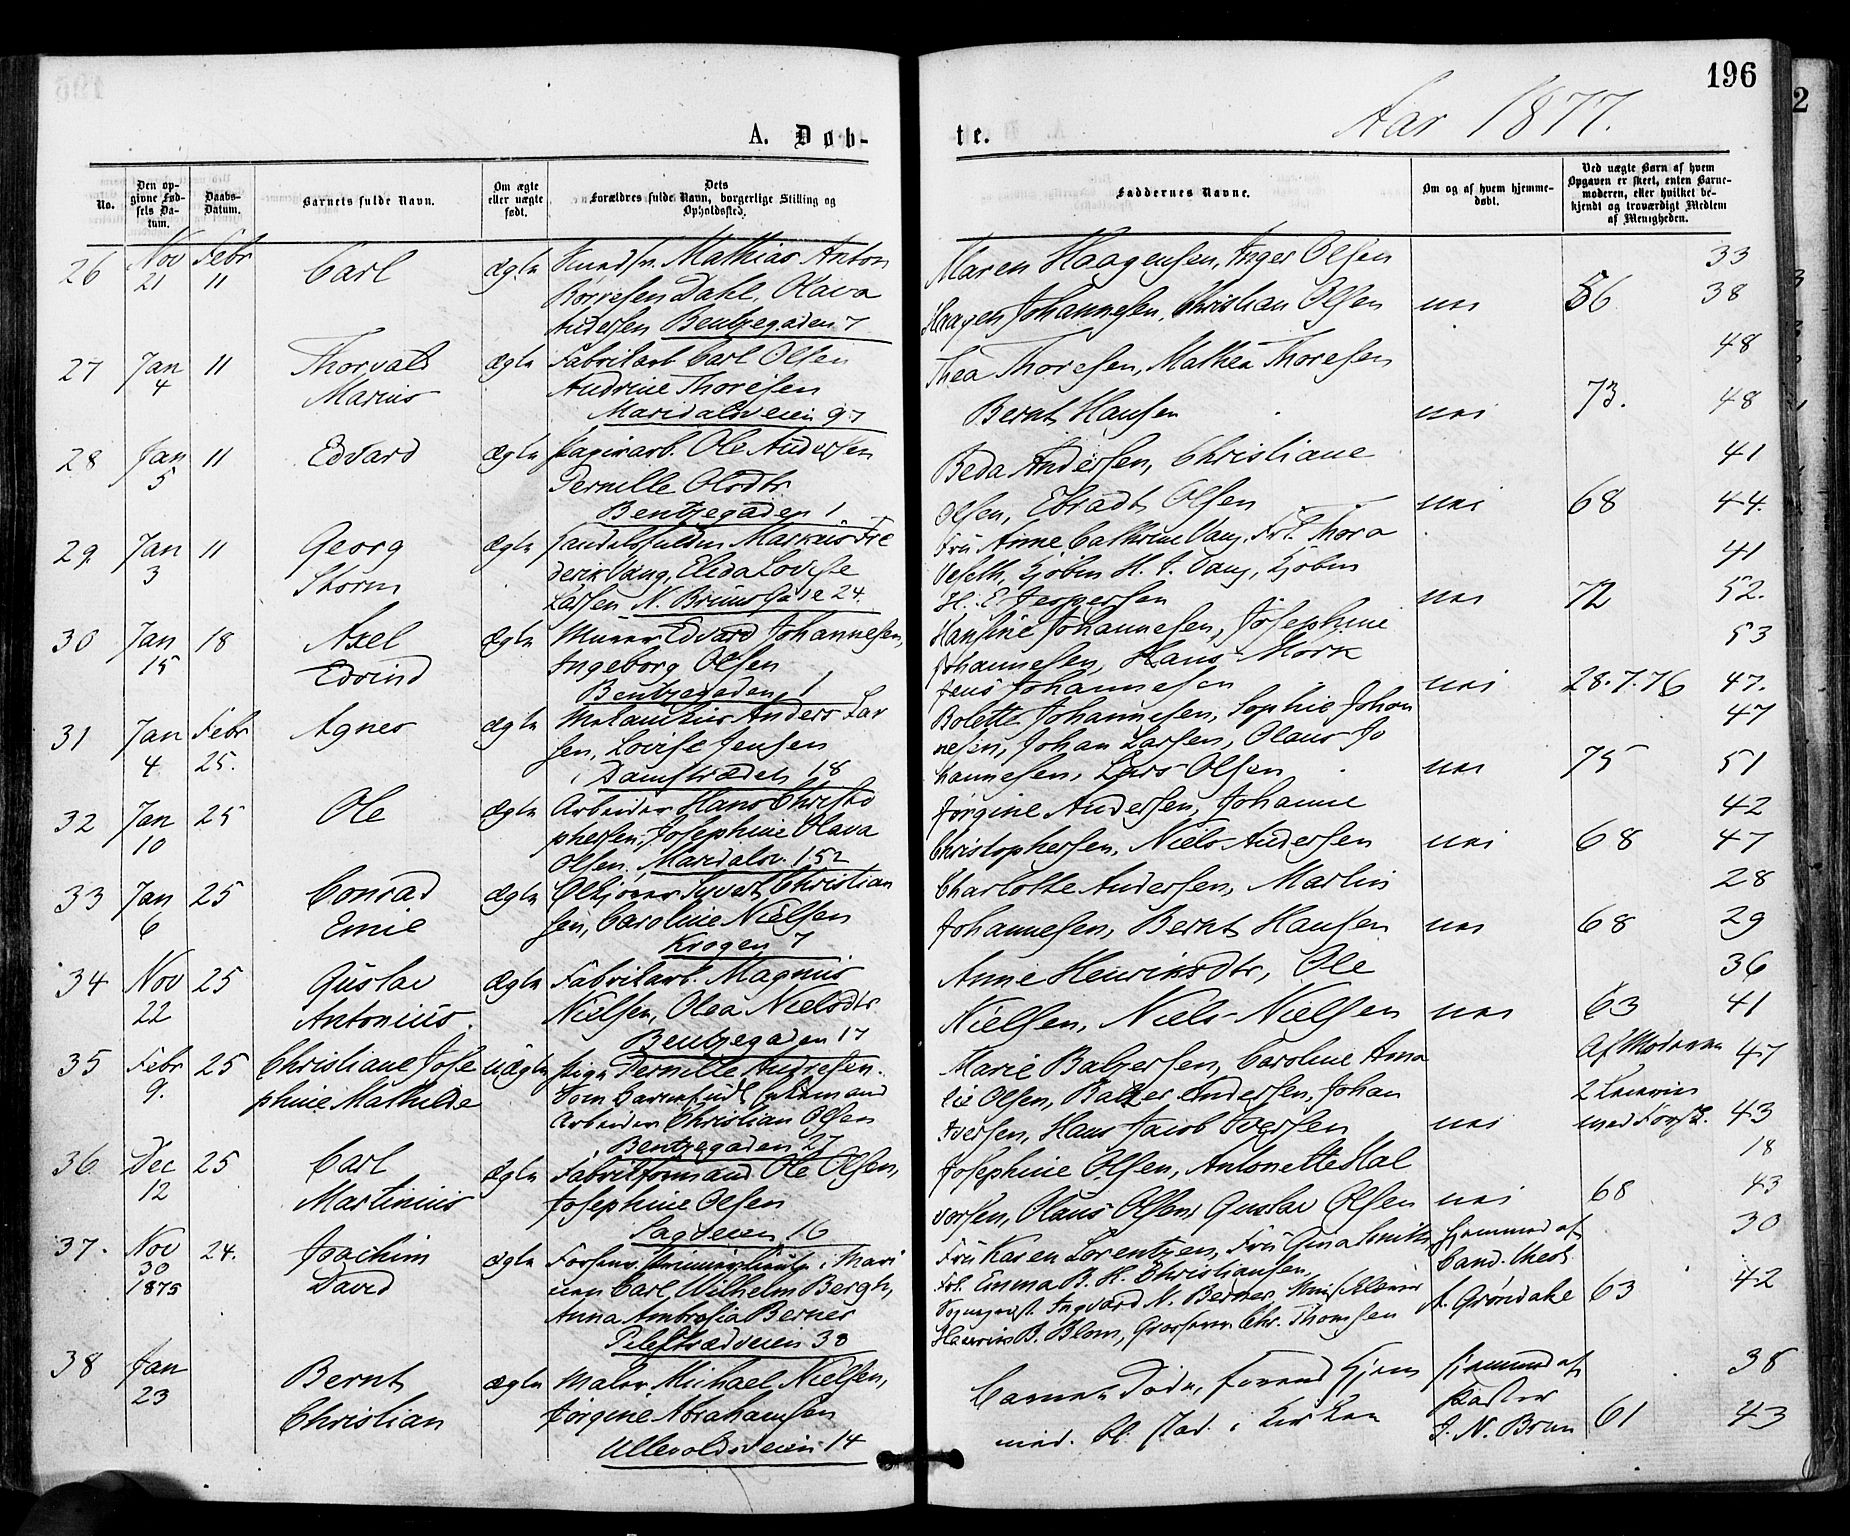 196
Aar 1877.
A. Døb-
te.
No.
Den op-
givne Fød-
sels Da-
tum.
Daabs-
Datum.
Barnets fulde Navn.
Om ægte
eller uægte
født.
Dets
Forældres fulde Navn, borgerlige Stilling og
Opholdssted.
Faddernes Navne.
Om og af hvem hjemme-
døbt.
Ved uægte Børn af hvem
Opgaven er skeet, enten Barne-
moderen, eller hvilket be-
kjendt og troværdigt Medlem
af Menigheden.
26 Nov 21 Febr 11 Carl ægte Mathias Anton
Børresen Dahl, Olava
Andersen Bentzegaden 7
Maren Haagensen, Inger Olsen 33
Haagen Johannesen, Christian Olsen nei 56 38
27 Jan 4 11 Thorvald
Marius
ægte Fabrikarb Carl Olsen
Andrine Thoresen
Maridalsveien 97
Thea Thoresen, Mathea Thoresen 48
Bernt Hansen nei 73. 48
28 Jan 5 11 Edvard ægte Papirarb. Ole Andersen
Pernille Olsdtr
Bentzegaden 1
Beda Andersen, Christiane 41
Olsen, Olsen nei 68 44.
29 Jan 3 11 Georg
Storm
ægte Markus Fre
derik Vang, Elida Lovise
Larsen N. Bruns Gade 24.
Fru Anne Cathrine Vang, Frk. Thora
Veseth, Kjøbm H. J. Vang, Kjøbm 41
H. E. Jespersen nei 72 52.
30 Jan 15 18 Axel
Edvind
ægte Murer Edvard Johannesen,
Ingeborg Olsen
Bentzegaden 1
Hansine Johannesen, Josephine 53
Johannesen, Hans Mörk
Jens Johannesen nei 28.7.76 47.
31 Jan 4 Febr 25. Agnes ægte Anders Lar
sen, Lovise Jensen
Damstrædet 18
Bolette Johannesen, Sophie Johan 47
nesen, Johan Larsen, Olaus Jo
hannesen, Lars Olsen nei 75 51
32 Jan 10 25 Ole ægte Arbeider Hans Christo
phersen, Josephine Olava
Olsen. Maridalsv. 152
Jørgine Andersen, Johanne 42
Christophersen, Niels Andersen nei 68 47
33 Jan 6 25 Conrad
Emil
ægte Sivert Christian
sen, Caroline Nielsen
Krogen 7
Charlotte Andersen, Martin 28
Johannesen, Bernt Hansen nei 68 29
34 Nov 22 25 Gustav
Antonius.
ægte Fabrikarb. Magnus
Nielsen, Olea Nielsdtr
Bentzegaden 17
Anne Henriksdtr, Ole 36
Nielsen, Niels Nielsen nei 63 41
35 Febr 9. 25 Christiane Jose
phine Mathilde
uægte Pige Pernille Andresen.
Som Barnefader
Arbeider Christian Olsen
Bentzegaden 27
Marie Balzersen, Caroline Ama 47
lie Olsen, Balzer Andersen, Johan
Iversen, Hans Jacob Iversen nei 43
Af Moderen
36 Dec 12 25 Carl
Martinius
ægte Fabrikformand Ole Olsen,
Josephine Olsen
Sagveien 16
Josephine Olsen, Antonette Hal 18
vorsen, Olaus Olsen, Gustav Olsen nei 68 43
37. Nov 30 1875 24. Joachim
David
ægte Premierlieutn i Mari
nen Carl Wilhelm Bergh,
Anna Ambrosia Berner
Pilestrædveien 30
Fru Karen Lorentzen, Fru Smith, 30
Frk. Emma B. K. Christiansen,
Sogneprest Ingvard N. Berner,
B. Blom, Grosserer Chr. Thomsen
Hjemmed af
Cand. Med.
A. Grøndahl 63 42
38 Jan 23 Bernt
Christian
ægte Maler Michael Nielsen,
Jørgine Abrahamsen
Ullevoldsveien 14
Barnet døde, forend Hjem
med. St. stad. i Kirken
Hjemmed af
Pastor
J. N. Brun 61 38
43